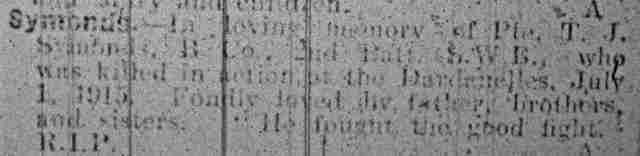 and children. A
Symonds.—In loving memory of Pte. T. J.
Symonds, B Co., 2nd Batt. S.W.B., who
was killed in action at the Dardanelles, July
1, 1915. Fondly loved by father, brothers,
and sisters. "He fought the good fight."
R.I.P. A